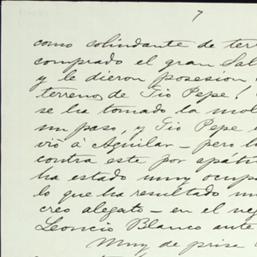 7
como colindante de ter
comprado el gran Sal
y le dieron posesion
terreno de Tio Pepe!
se ha tomado la mol
un paso, y Tio Pepe
vió á Aguilar— pero l
contra este por apati
ha estado muy ocup
lo que ha resultado m
creo alegato— en el neg
Leoncio Blanco ante
Muy de prisa